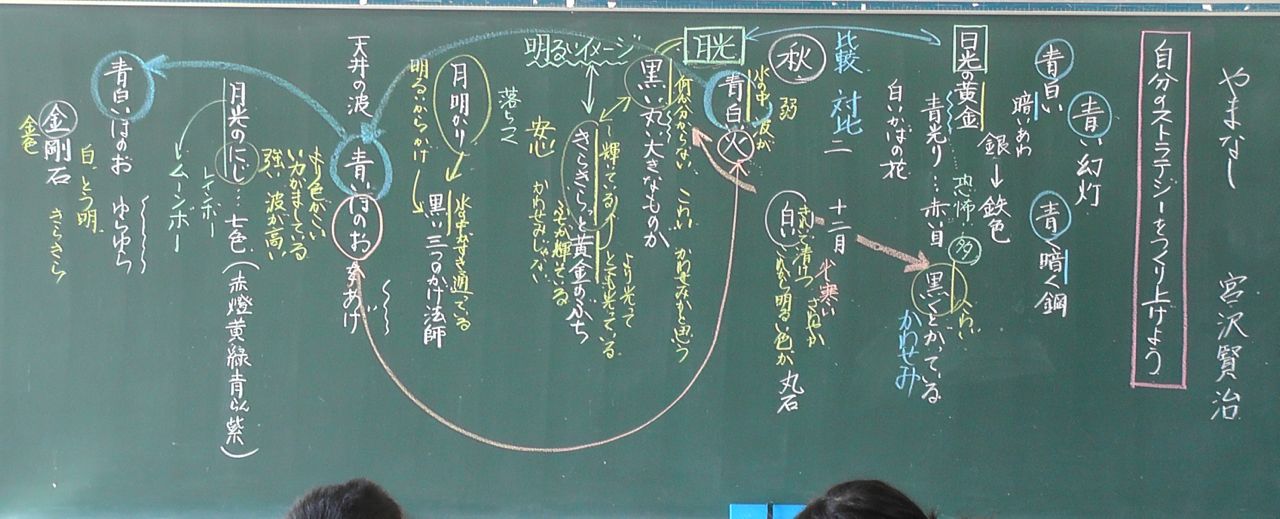 やまなし
宮沢賢治
自分のストラテジーをつくり上げよう
青い幻灯
青く暗く鋼
青白い
暗いあわ
銀→鉄色
日光の黄金
青光り…赤い目
恐怖
黒くとがっている
かわせみ
白いかばの花
比較
対比
十二月
秋
白い
丸石
月光
弱
青白い火
明るいイメージ
黒い丸い大きなものか
何か分からない
こわい
かわせみかと思う
きらきらっと黄金のぶち
輝いている
より光って
とても光っている
安心
かわせみじゃない
落ちて
月明かり
明るいからかげ
黒い三つのかげ法師
天井の波
青いほのおをあげ
より色がこい
強い
波が高い
月光のにじ…七色(赤橙黄緑青らん紫)
レインボー
ムーンボー
青白いほのお
ゆらゆら
金剛石
金色
白
とう明
きらきら